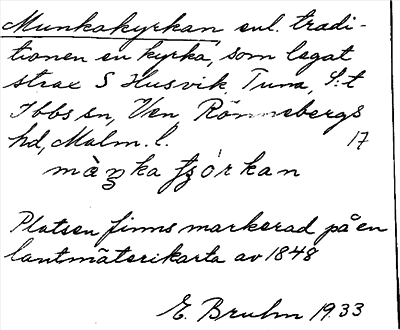 Munkakyrkan enl. tradi-
tionen en kyrka, som legat
strax S Husvik, Tuna, S:t
Ibbs sn, Ven, Rönnebergs
hd, Malm. l. 17
Platsen finns markerad på en
lantmäterikarta av 1848
E. Bruhn 1933